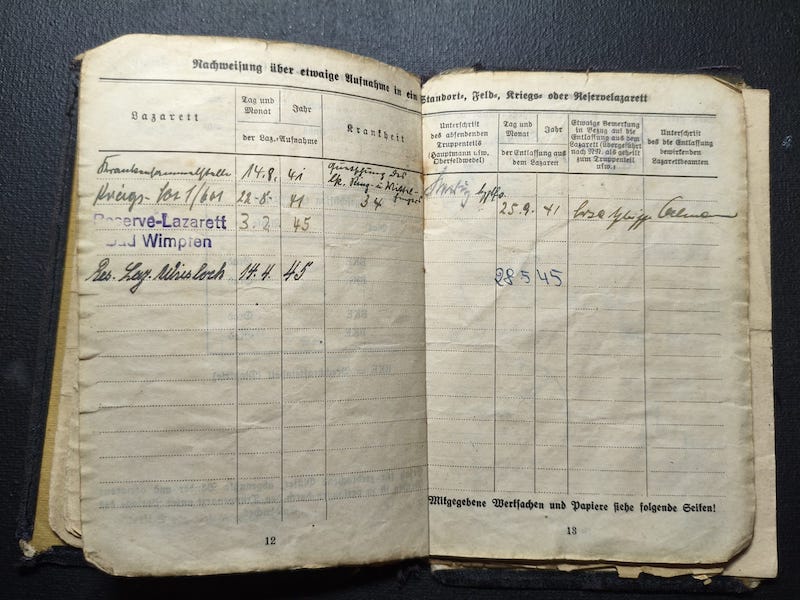 Nachweisung über etwaige Aufnahme in ein Standort-, Feld-, Kriegs- oder Reservelazarett
Lazarett
Tag und Monat
Jahr
der Laz.-Aufnahme
Krankheit
Krankensammelstelle 14.8. 41 Quetschung des
Kriegs-Laz 1/601 22-8- 41 34
Reserve-Lazarett 3. 2. 45
Bad Wimpfen
Res. Laz. Wiesloch 14. 4. 45
12
Unterschrift
des absendenden
Truppenteils
(Hauptmann usw.
Oberfeldwebel)
Tag und Monat
Jahr
der Entlassung aus
dem Lazarett
Etwaige Bemerkung
in Bezug auf die
Entlassung aus dem
Lazarett (übergeführt
nach NN. als geheilt
zum Truppenteil
usw.)
Unterschrift
des die Entlassung
bewirkenden
Lazarettbeamten
25.9. 41
28 5 45
Mitgegebene Wertsachen und Papiere siehe folgende Seiten!
13